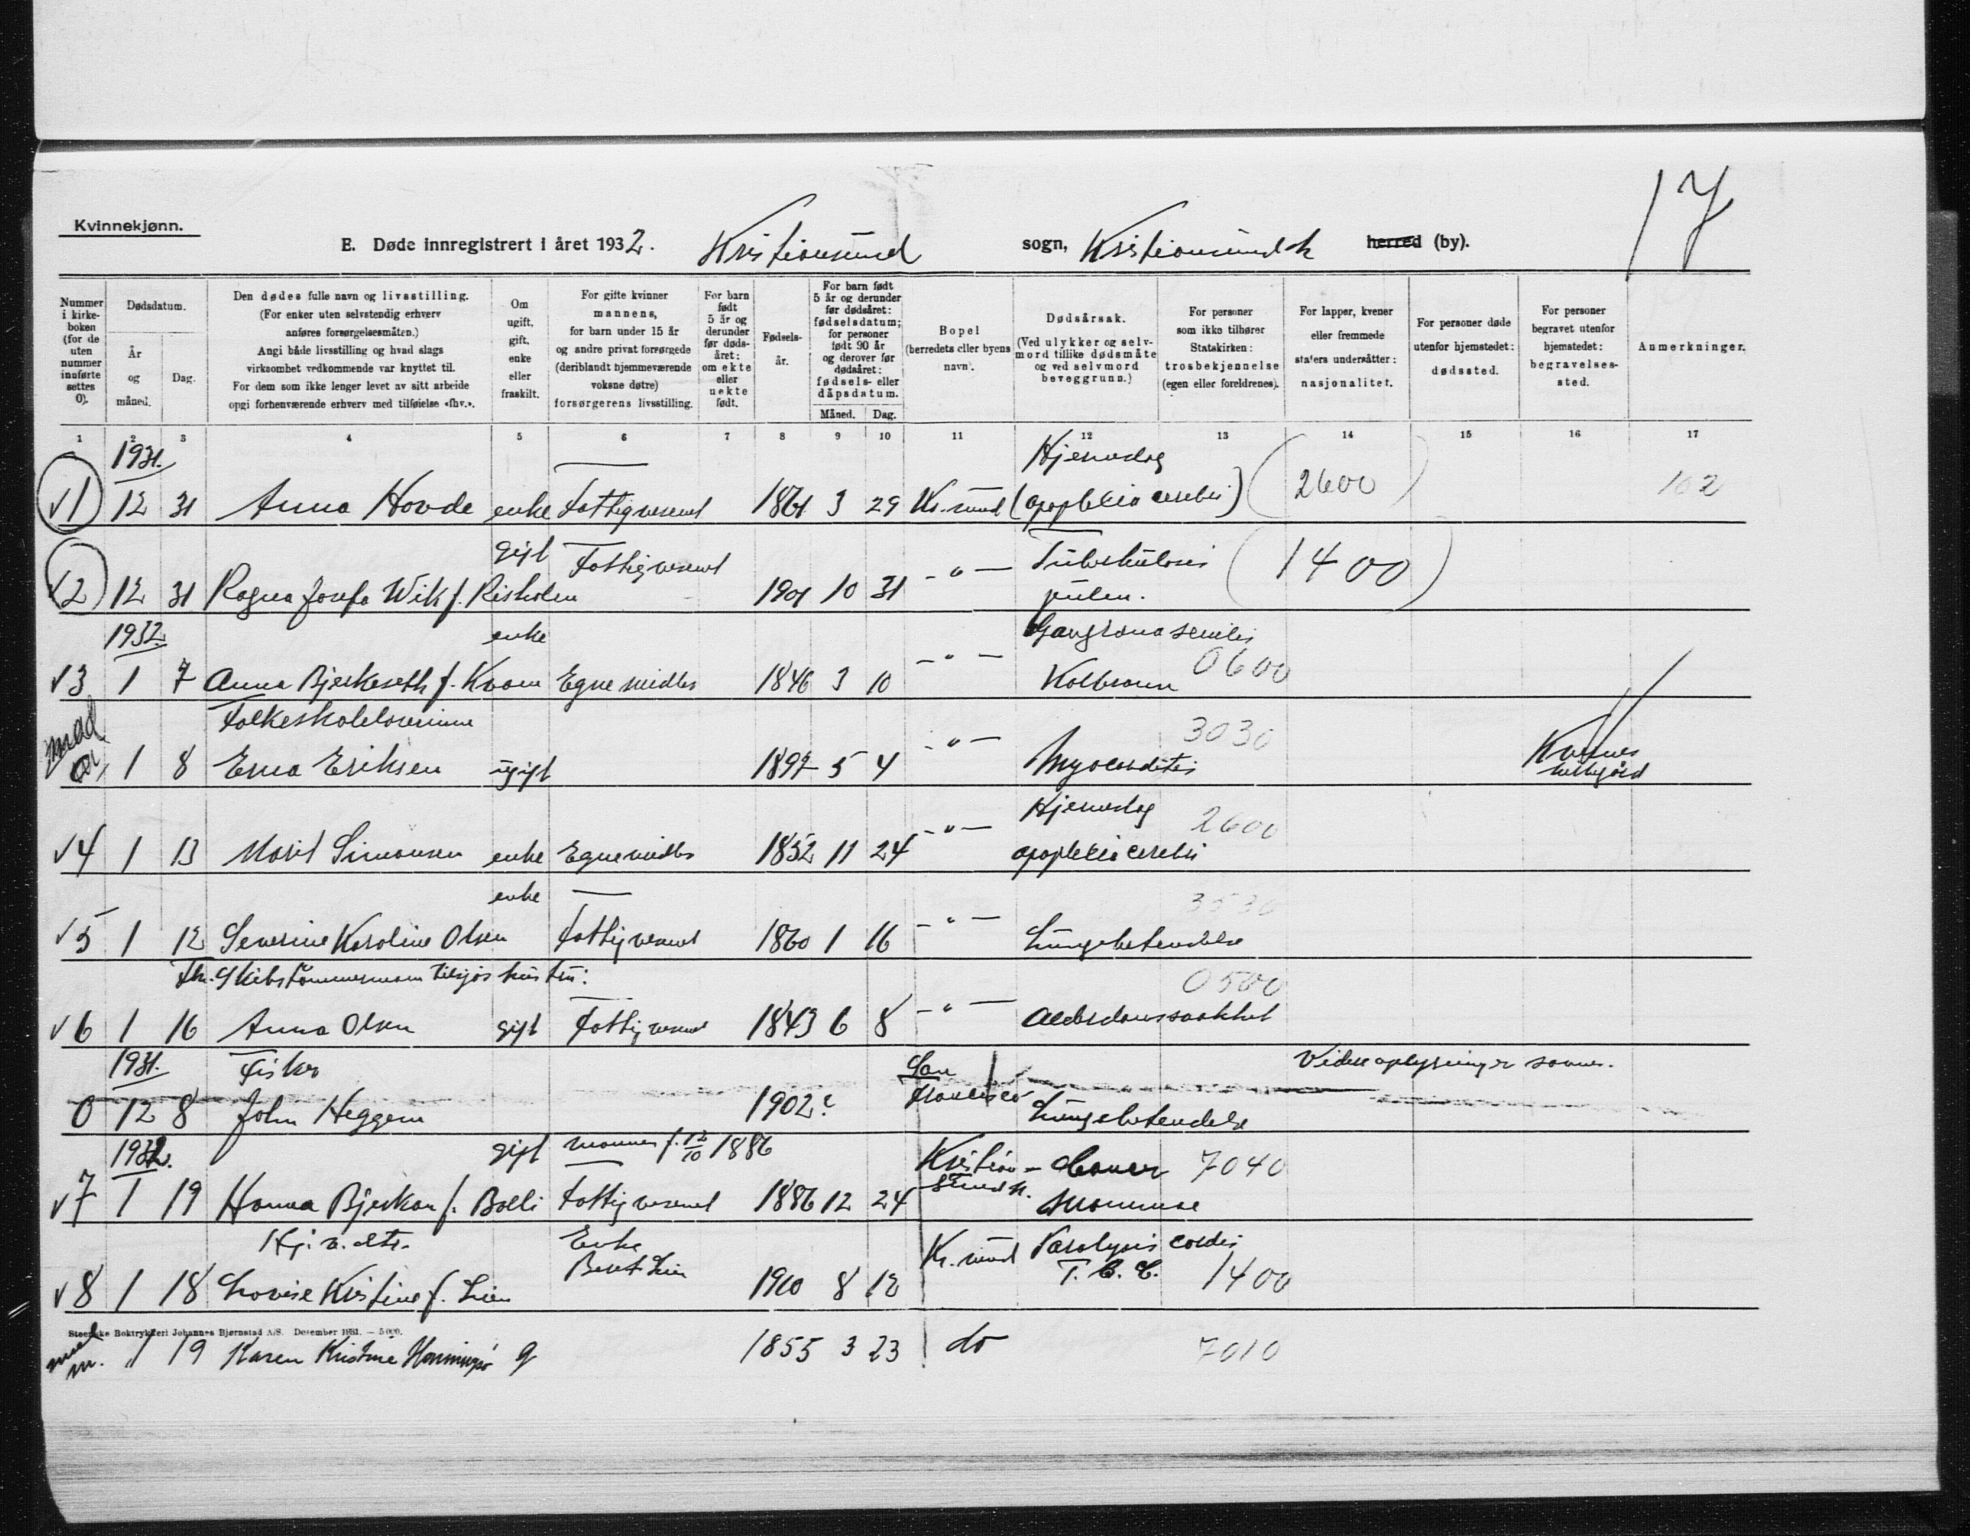 17
Kvinnekjønn.
E. Døde innregistrert i året 1932. Kristiansund sogn, Kristiansund N herred (by).
Nummer i kirkeboken (for de uten nummer innførte settes 0).
Dødsdatum.
År og måned.
Dag.
Den dødes fulle navn og livsstilling.
(For enker uten selvstendig erhverv anføres forsørgelsesmåten.)
Angi både livsstilling og hvad slags virksomhet vedkommende var knyttet til.
For dem som ikke lenger levet av sitt arbeide opgi forhenværende erhverv med tilføielse «fhv.».
Om ugift, gift, enke eller fraskilt.
For gifte kvinner mannens, for barn under 15 år og andre privat forsørgede (deriblandt hjemmeværende voksne døtre) forsørgerens livsstilling.
For barn født 5 år og derunder før dødsåret: om ekte eller uekte født.
Fødselsår.
For barn født 5 år og derunder før dødsåret: fødselsdatum; for personer født 90 år og derover før dødsåret: fødsels- eller dåpsdatum.
Måned. Dag.
Bopel (herredets eller byens navn).
Dødsårsak.
(Ved ulykker og selvmord tillike dødsmåte og ved selvmord beveggrunn.)
For personer som ikke tilhører Statskirken: trosbekjennelse (egen eller foreldrenes).
For lapper, kvener eller fremmede staters undersåtter: nasjonalitet.
For personer døde utenfor hjemstedet: dødssted.
For personer begravet utenfor hjemstedet: begravelsessted.
Anmerkninger.
1 2 3 4 5 6 7 8 9 10 11 12 13 14 15 16 17
1931. Hjerneslag
1 12 31 Anna Hovde enke Fattigvesenet 1861 3 29 Kr.sund (apoplexia cerebri) (2600) 102
gift Fattigvesenet -"- Tuberkulosis (1400)
2 12 31 Ragna Josefa Wik f. Risholen 1901 10 31 pulm.
1932. enke Gangræna senilis
3 1 7 Anna Bjerkeseth f. Kvam Egne midler 1846 3 10 -"- Koldbrann 0600
Folkeskolelærerinne 3030
1 8 Erna Eriksen ugift 1892 5 4 -"- Myocarditis Kvernes kirkegård
Hjerneslag 2600
4 1 13 Marit Simonsen enke Egne midler 1852 11 24 -"- apoplexia cerebri
enke 3530
5 1 12 Severine Karoline Olsen Fattigvesenet 1860 1 16 -"- Lungebetendelse
Fhv. Skibstømmermann 0500
6 1 16 Anna Olsen gift Fattigvesenet 1843 6 8 -"- Alderdomssvakhet
1931. Fisker San Francisco Videre oplysninger savnes.
0 12 8 John Heggem 1902? Lungebetendelse
1932. gift mannen f. 12/10 1886 Kristiansund N. Cancer 7040
7 1 19 Hanna Bjerkan f. Bolli Fattigvesenet 1886 12 24 mammae
Hj.v. dtr. Enke Kr.sund Paralysis cordis
8 1 18 Lovise Kristine f. Lien Beret Lien 1910 8 12 T.B.C. 1400
Steenske Boktrykkeri Johannes Bjørnstad A/S. Desember 1931. — 5 000.
1 19 Karen Kristine g 1855 3 23 do 7010